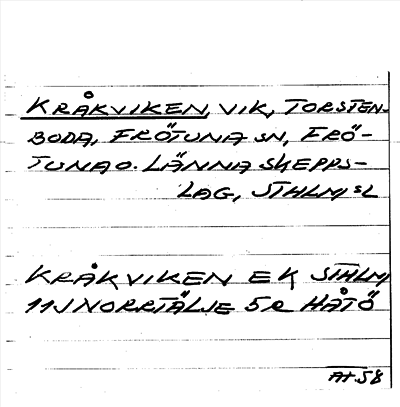 KRÅKVIKEN, VIK, TORSTEN-
BODA, FRÖTUNA SN, FRÖ-
TUNA O. LÄNNA SKEPPS-
LAG, STHLMS L
KRÅKVIKEN EK STHLM
11J NORRTÄLJE 5R HÅTÖ
At.58